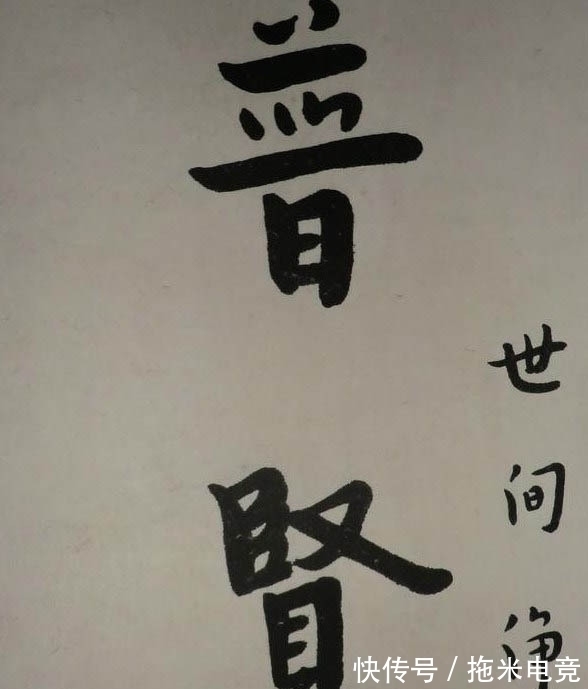 世间净
普賢
快传号 / 拖米电竞